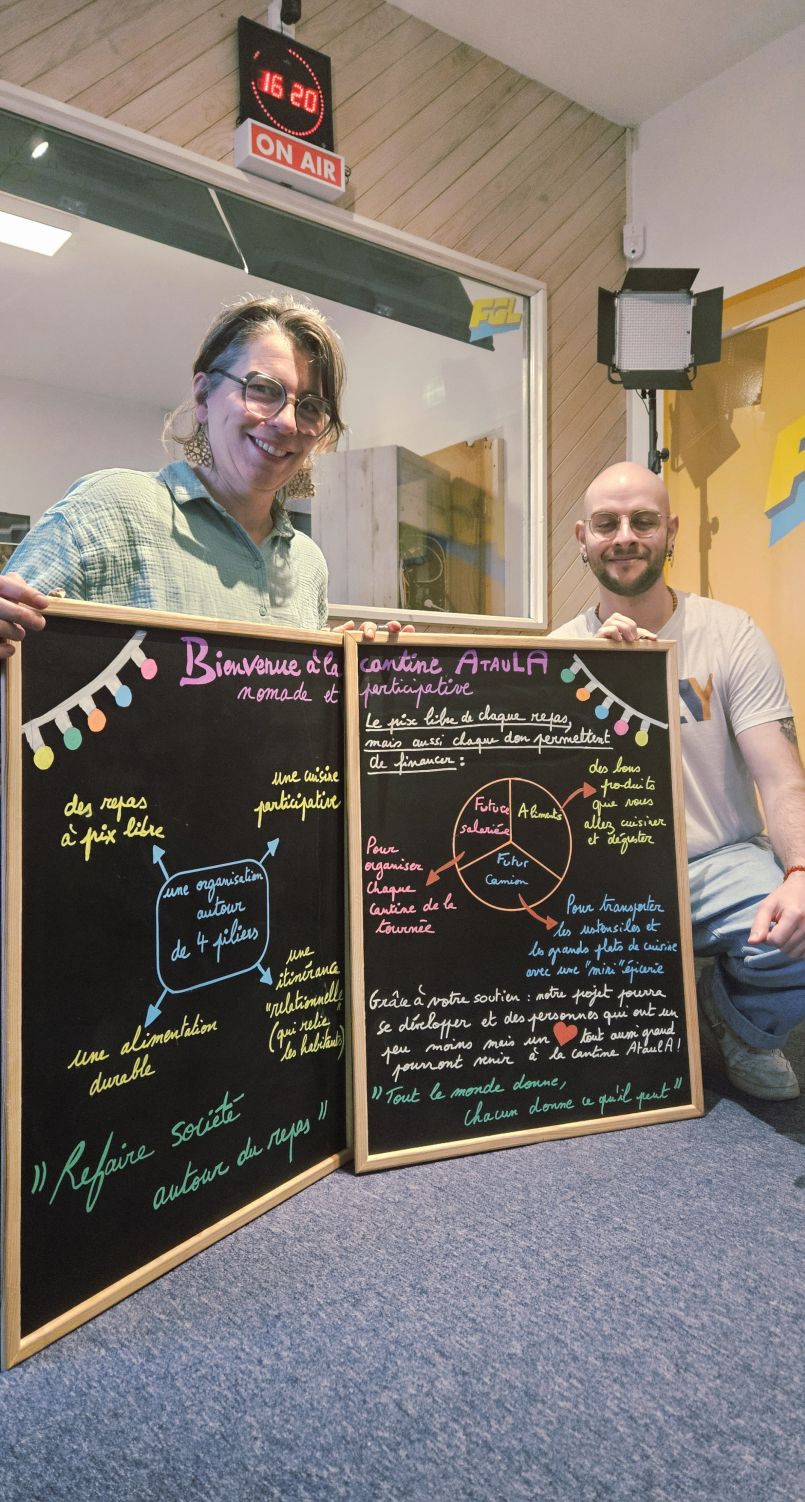 16 20
ON AIR
FGL
Bienvenue à la cantine AtaulA
nomade et participative
des repas
à prix libre
une cuisine
participative
une organisation
autour
de 4 piliers
une alimentation
durable
une
itinérance
"relationnelle"
(qui relie
les habitants)
"Refaire société
autour du repas"
Le prix libre de chaque repas,
mais aussi chaque don permettent
de financer :
Future
salariée
Aliments
Futur
Camion
des bons
produits
que vous
allez cuisiner
et déguster
Pour
organiser
chaque
cantine de la
tournée
Pour transporter
les ustensiles et
les grands plats de cuisine
avec une "mini" épicerie
Grâce à votre soutien : notre projet pourra
se développer et des personnes qui ont un
peu moins mais un ❤ tout aussi grand
pourront venir à la cantine AtaulA !
"Tout le monde donne,
chacun donne ce qu'il peut"